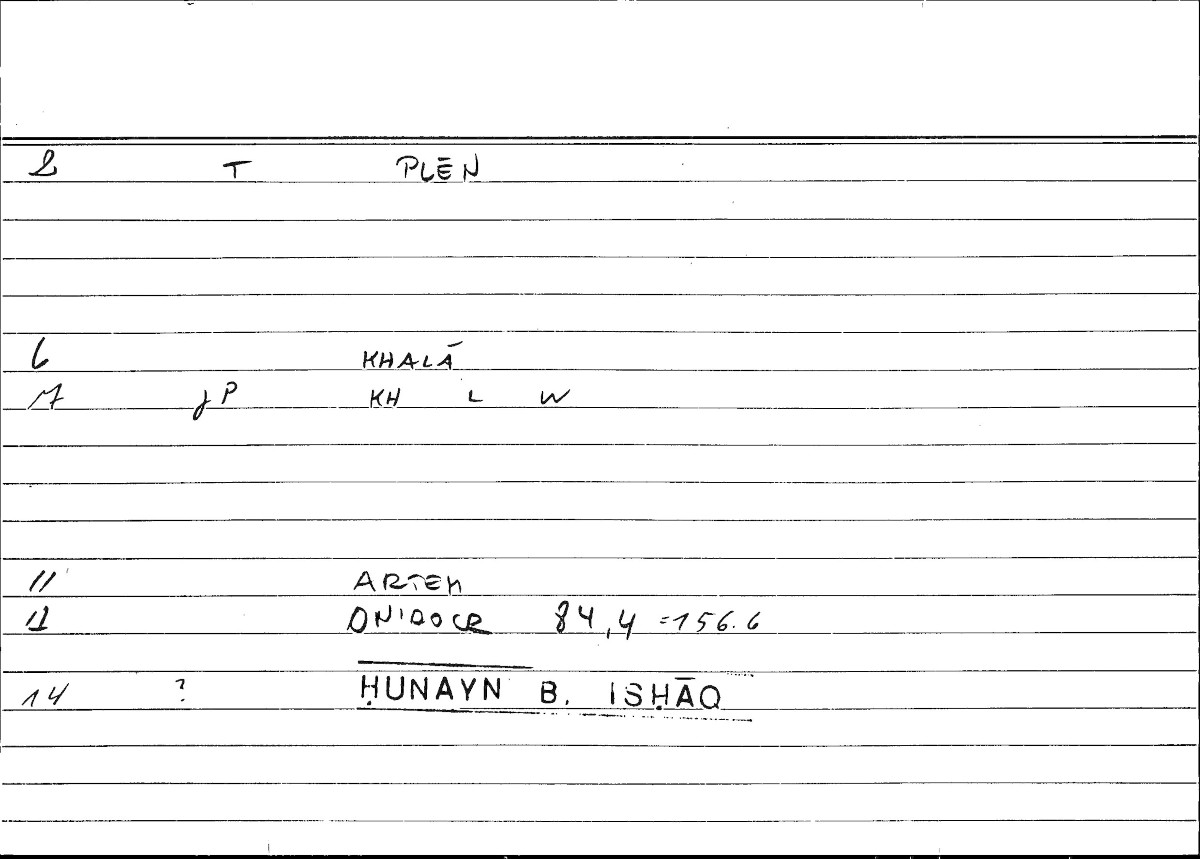 T PLĒN
6 KHALĀ
17 JP KH L W
11 ARTEM
ONIROCR 84,4 =156.6
14 ? ḤUNAYN B. ISḤĀQ